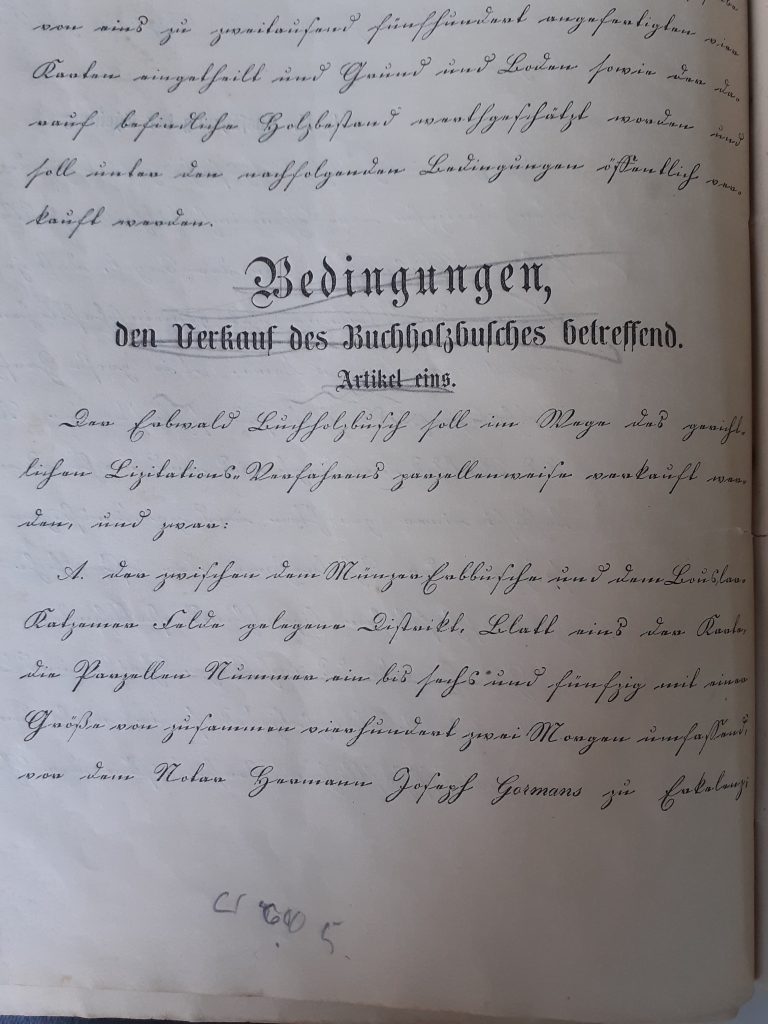 von eins zu zweitausend fünfhundert angefertigten vier
Karten eingetheilt und Grund und Boden sowie der da-
rauf befindliche Holzbestand werthgeschätzt worden und
soll unter den nachfolgenden Bedingungen öffentlich ver-
kauft werden.
Bedingungen,
den Verkauf des Buchholzbusches betreffend.
Artikel eins.
Der Erbwald Buchholzbusch soll im Wege des gericht-
lichen Lizitations-Verfahrens parzellenweise verkauft wer-
den, und zwar:
A. der zwischen dem Münzer Erbbusche und dem Bouslar-
Katzemer Felde gelegene Distrikt, Blatt eins der Karte,
die Parzellen Nummer ein bis sechs und fünfzig mit einer
Größe von zusammen vierhundert zwei Morgen umfassend,
vor dem Notar Hermann Joseph Gormans zu Erkelenz;